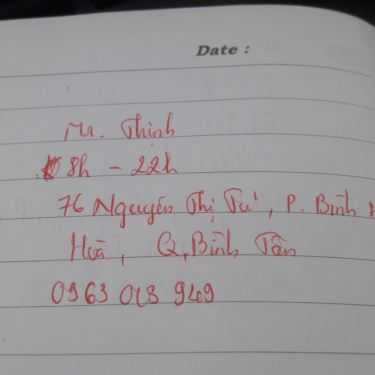 Date :
Mr. Thịnh
8h - 22h
76 Nguyễn Thị Tú, P. Bình H
Hoà, Q. Bình Tân
0963 018 949